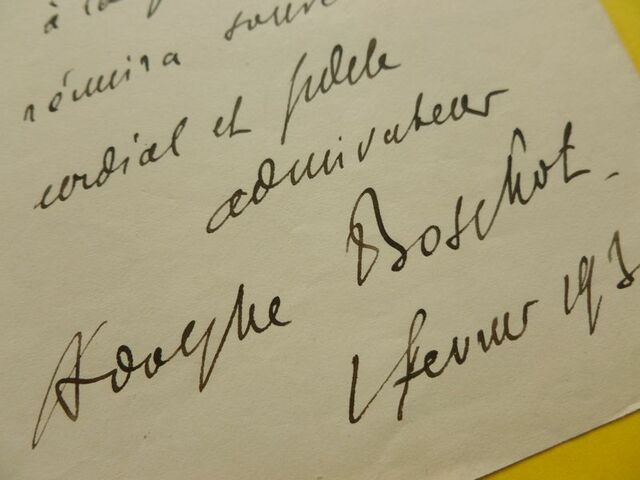 à la
réunira souve
cordial et fidèle
admirateur
Adolphe Boschot.
1 février 193